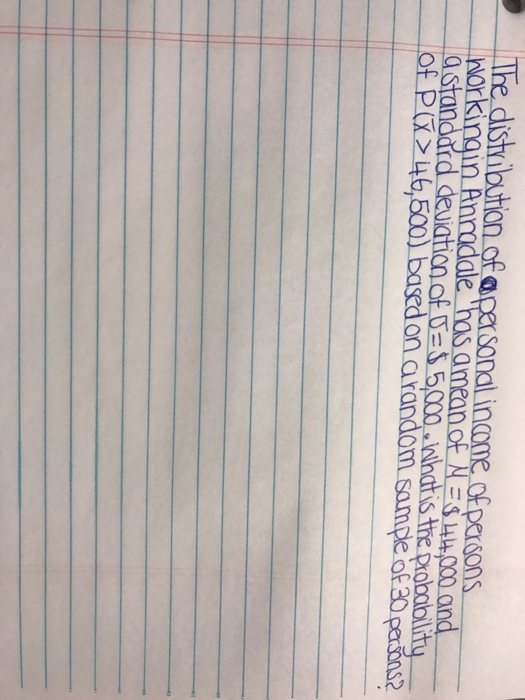 The distribution of personal income of persons
working in Annadale has a mean of M = $44,000 and
a standard deviation of σ = $5,000. What is the probability
of P(x̄ > 46,500) based on a random sample of 30 persons?